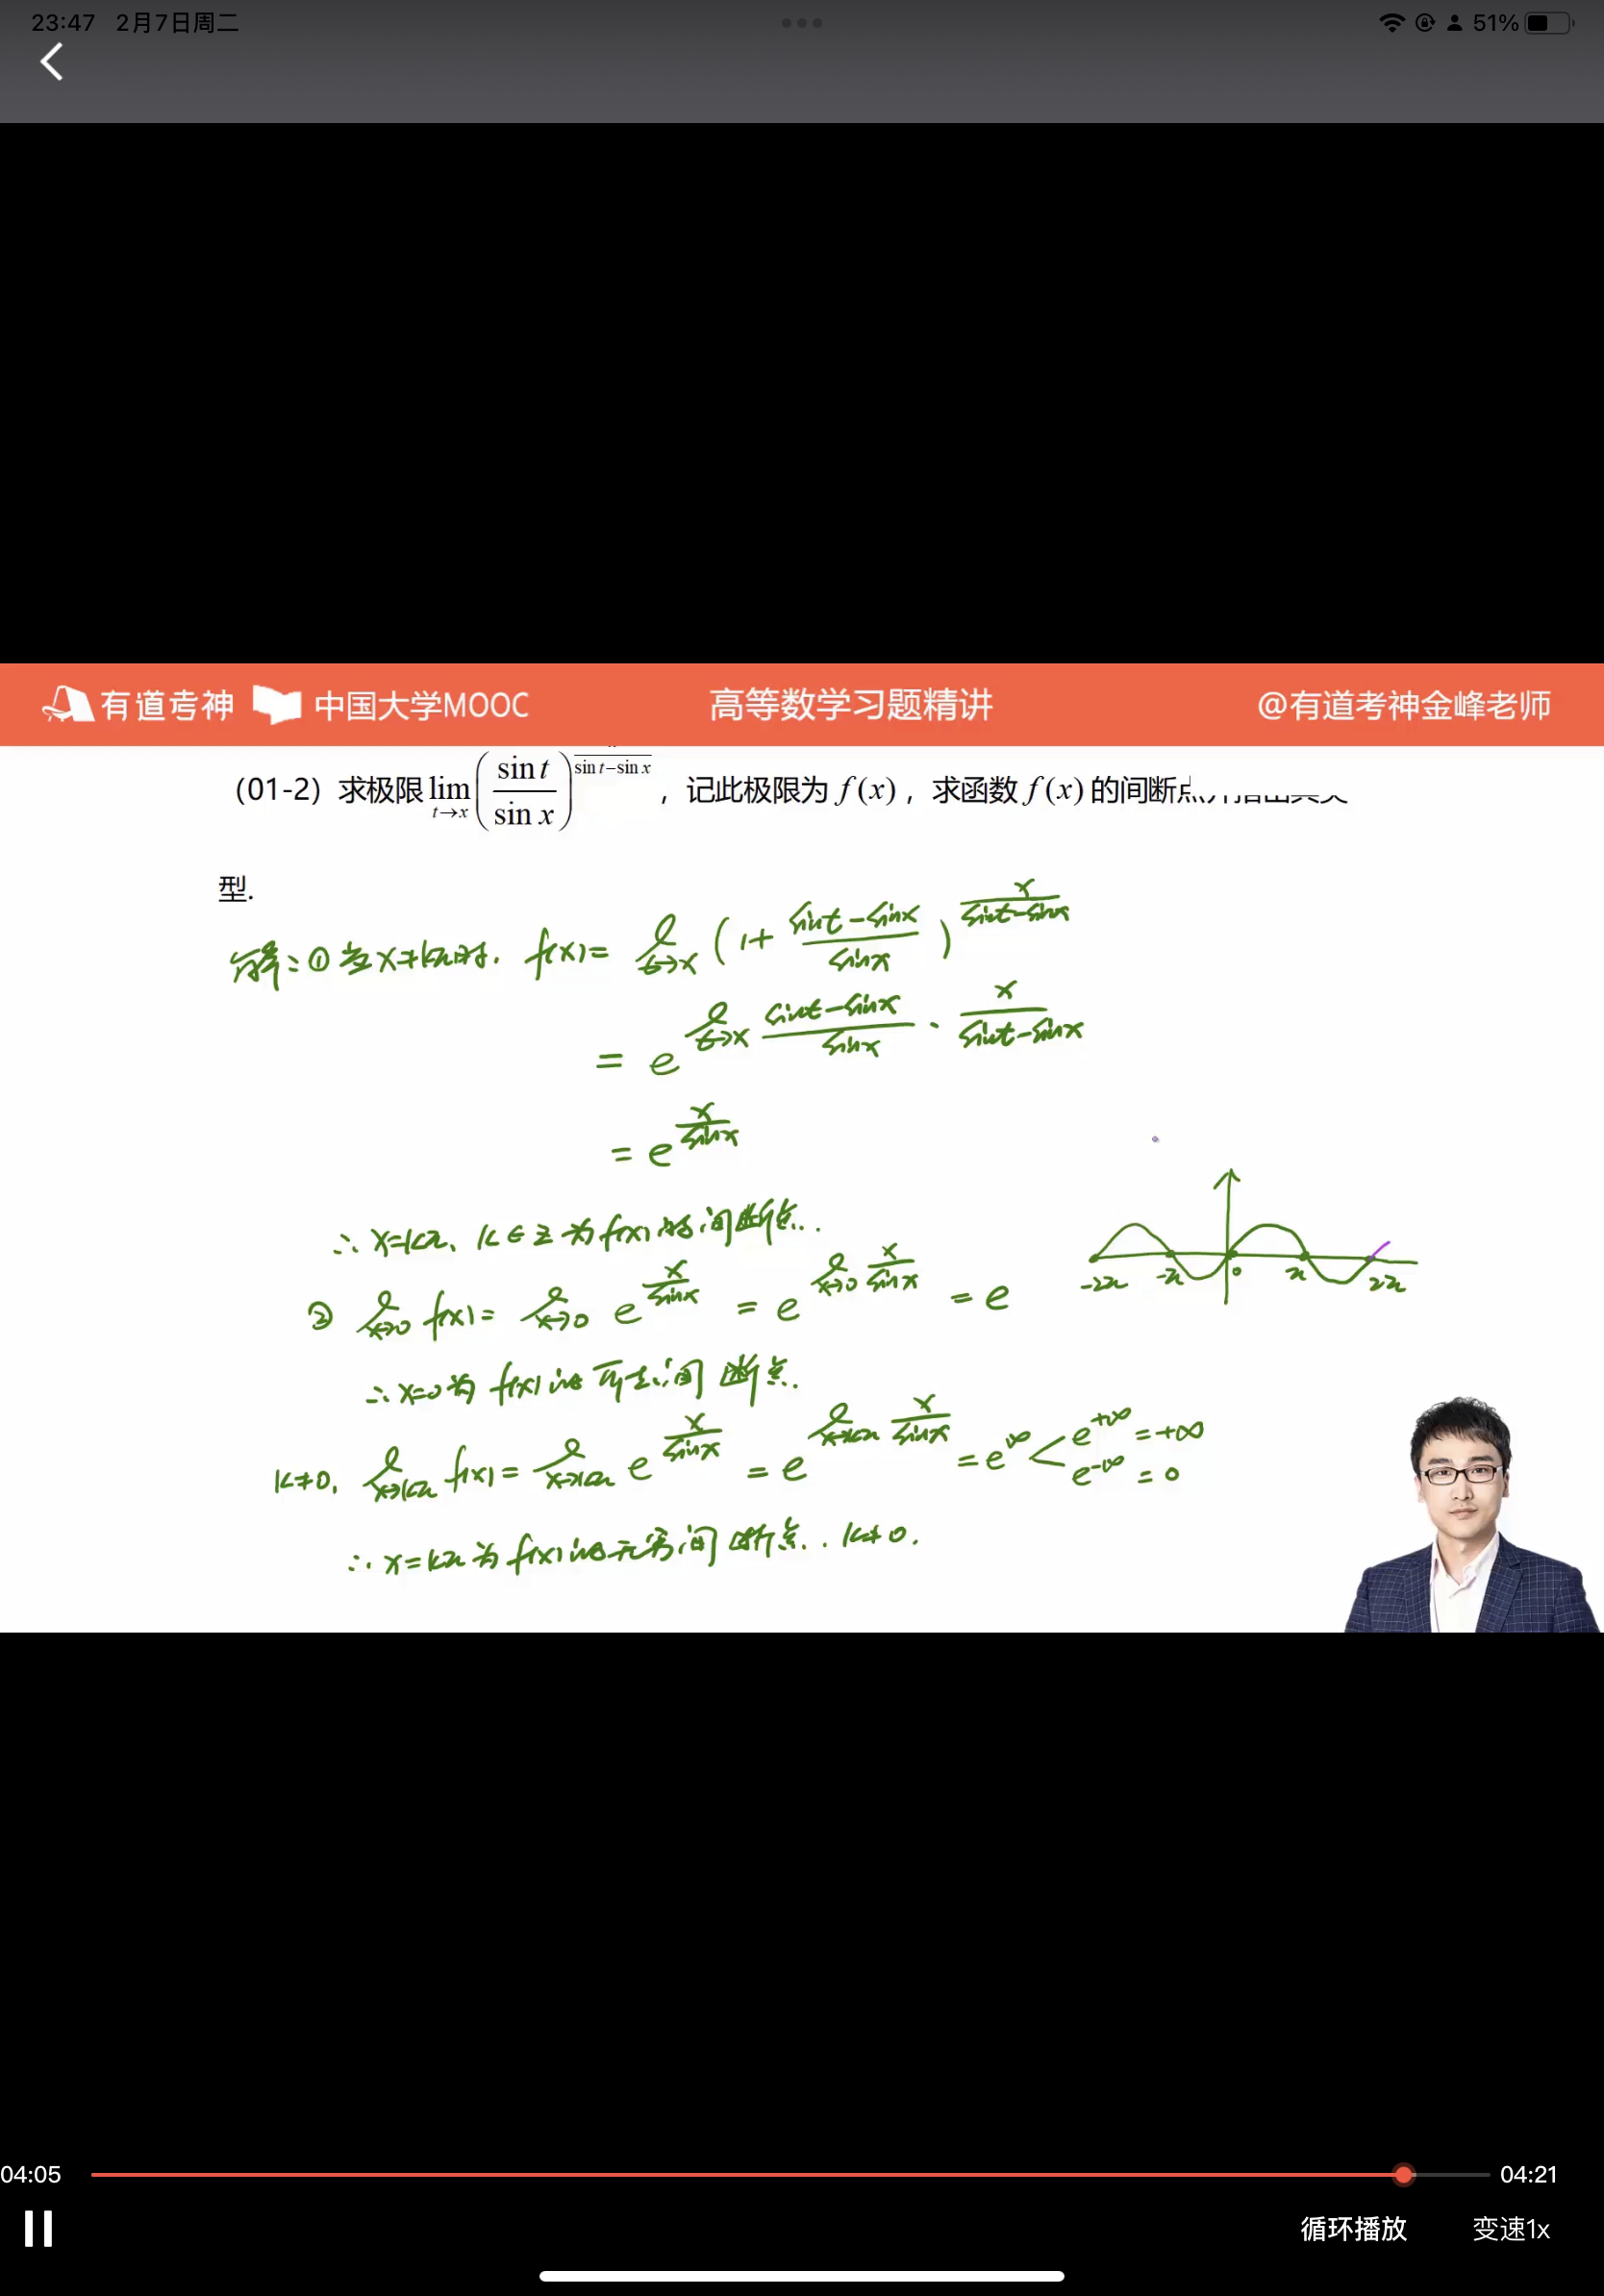 23:47 2月7日周二
51%
有道考神 中国大学MOOC 高等数学习题精讲 @有道考神金峰老师
(01-2) 求极限 lim t→x (sin t / sin x)^(/ sin t−sin x) ，记此极限为 f(x)，求函数 f(x) 的间断
型.
解：① 当 x≠kπ时. f(x)= lim t→x (1+ (sint−sinx)/sinx)^(x/(sint−sinx))
= e^(lim t→x (sint−sinx)/sinx · x/(sint−sinx))
= e^(x/sinx)
∴ x=kπ、k∈Z 为 f(x) 的间断点.
-2π -π 0 π 2π
② lim x→0 f(x)= lim x→0 e^(x/sinx) = e^(lim x→0 x/sinx) = e
∴ x=0为 f(x) 的可去间断点.
k≠0, lim x→kπ f(x)= lim x→kπ e^(x/sinx) = e^(lim x→kπ x/sinx) = e^∞ < e^+∞ =+∞ e^-∞ =0
∴ x=kπ为 f(x) 的无穷间断点. k≠0.
04:05 04:21
循环播放 变速1x